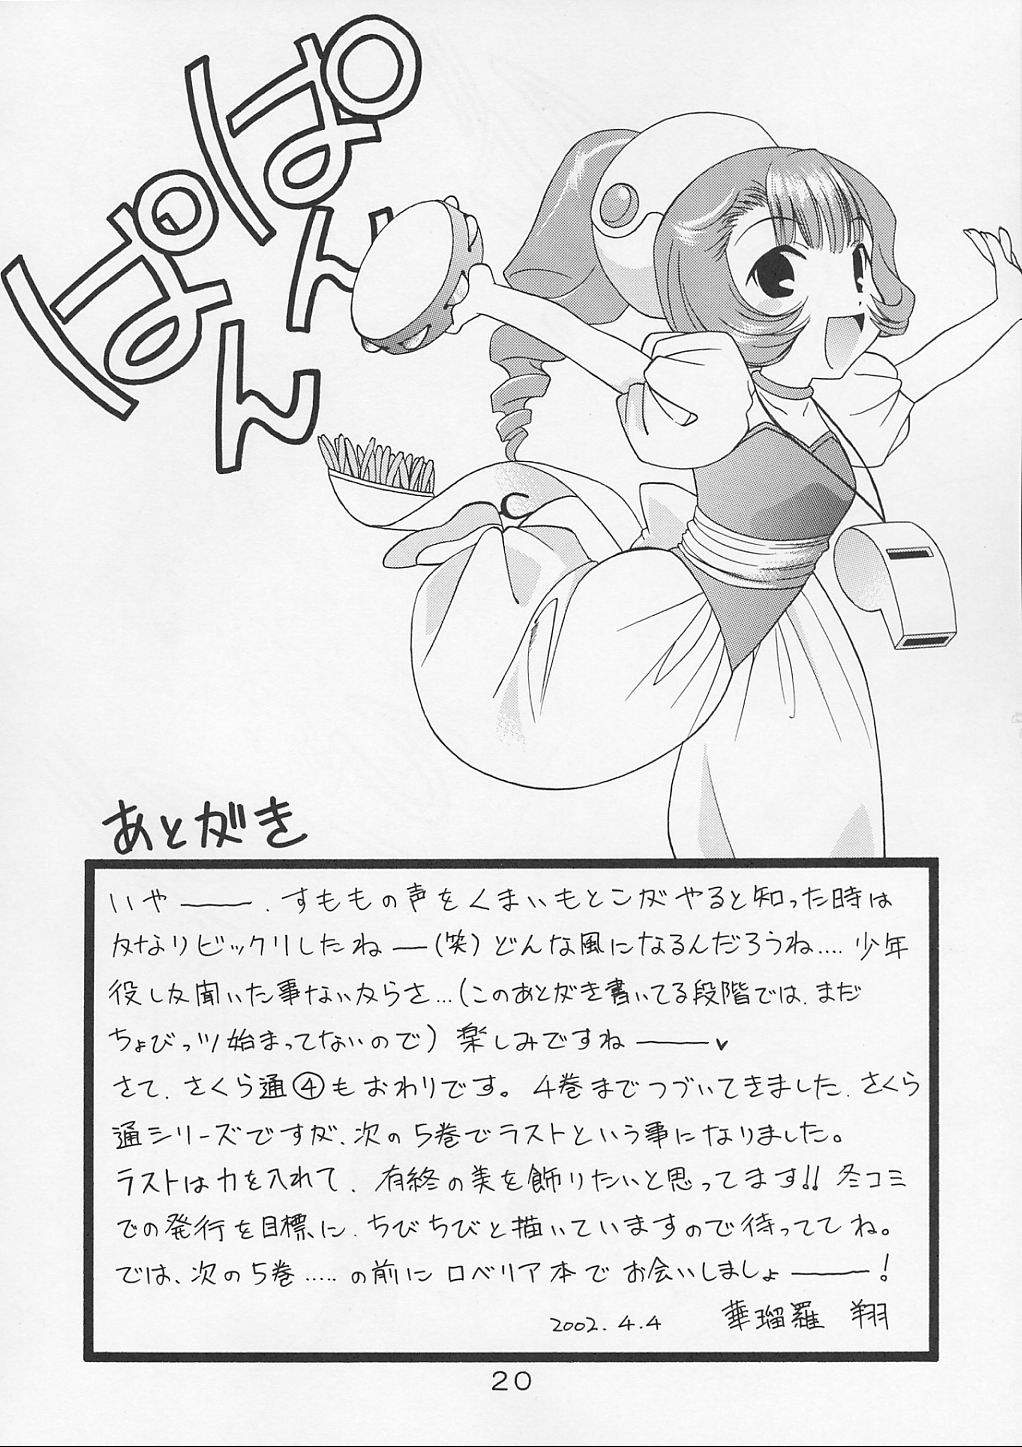 ぱぱ
ぱん
ぱん
あとがき
いやー、すももの声をくまいもとこがやると知った時は
かなりビックリしたねー(笑)どんな風になるんだろうね…. 少年
役しか聞いた事ないからさ…(このあとがき書いてる段階では、まだ
ちょびっツ始まってないので)楽しみですねー♥
さて、さくら通④もおわりです。4巻までつづいてきました、さくら
通シリーズですが、次の5巻でラストという事になりました。
ラストは力を入れて、有終の美を飾りたいと思ってます!! 冬コミ
での発行を目標に、ちびちびと描いていますので待っててね。
では、次の5巻…..の前にロベリア本でお会いしましょー!
2002.4.4 華瑠羅 翔
20